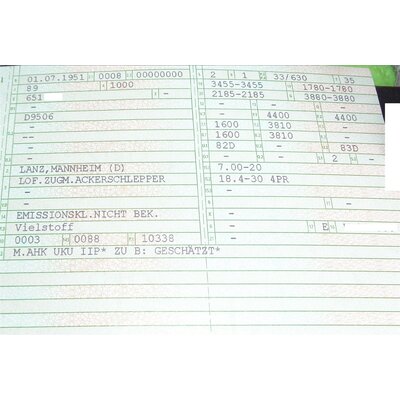 01.07.1951 0008 00000000
89 1000
651
-
D9506
-
-
-
LANZ,MANNHEIM (D)
LOF.ZUGM.ACKERSCHLEPPER
-
-
EMISSIONSKL.NICHT BEK.
Vielstoff
0003 0088 10338
M.AHK UKU IIP* ZU B: GESCHÄTZT*
2 1 33/630 35
3455-3455 1780-1780
2185-2185 3880-3880
- - - -
- 4400 4400
1600 3810 - -
1600 3810 - -
82D - 83D
- - 2 -
7.00-20
18.4-30 4PR
-
- E
-